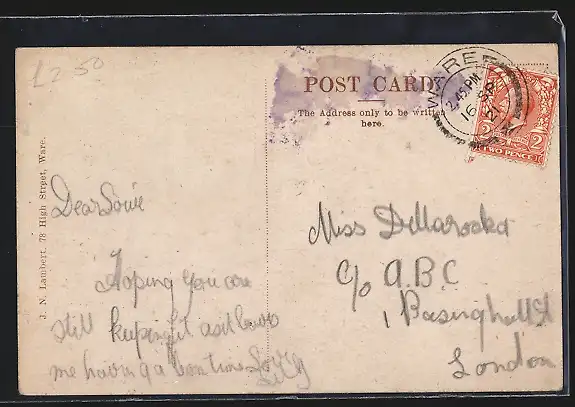 £2-50
POST CARD
The Address only to be written
here.
WARE
2.45 PM
16 SP
21
2 2
TWO PENCE
J. N. Lambert, 78 High Street, Ware.
Dear
Hoping you are
still keeping it as it leaves
me having a bon time
Miss
C/o A.B.C
1 Basinghall St
London